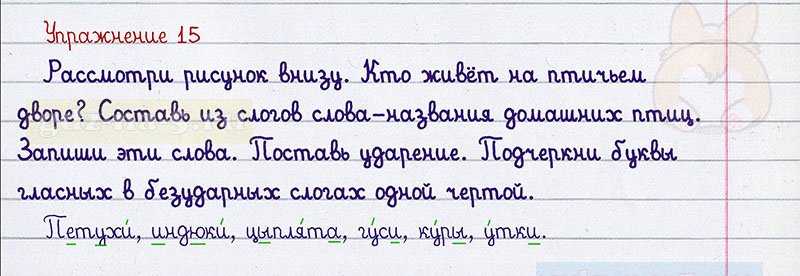 Упражнение 15
Рассмотри рисунок внизу. Кто живёт на птичьем
дворе? Составь из слогов слова-названия домашних птиц.
Запиши эти слова. Поставь ударение. Подчеркни буквы
гласных в безударных слогах одной чертой.
Петухи́, индюки́, цыпля́та, гу́си, ку́ры, у́тки.